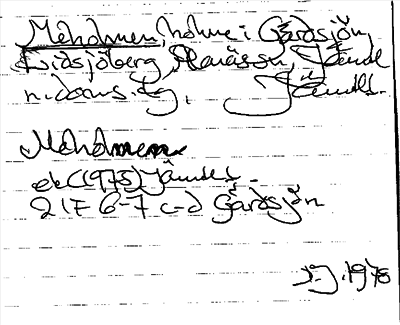 Mehdmen, holme i Gårdsjön,
Lidsjöberg, Alanäs sn,
n. doms. sg, Jämtl.
Mehdmen
ek (1975) Jämtl.
21F 6-7 c-d Gårdsjön
1978